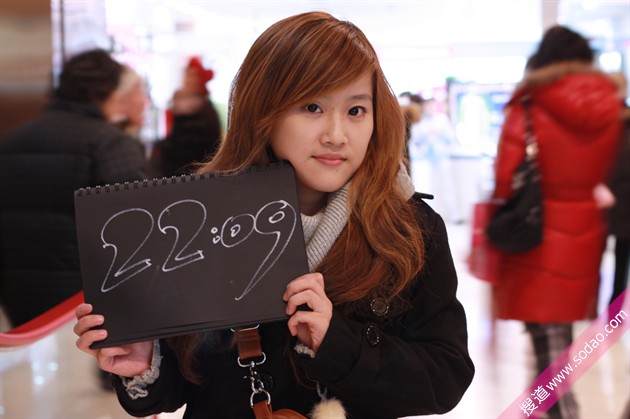 22:09
搜道 www.sodao.com